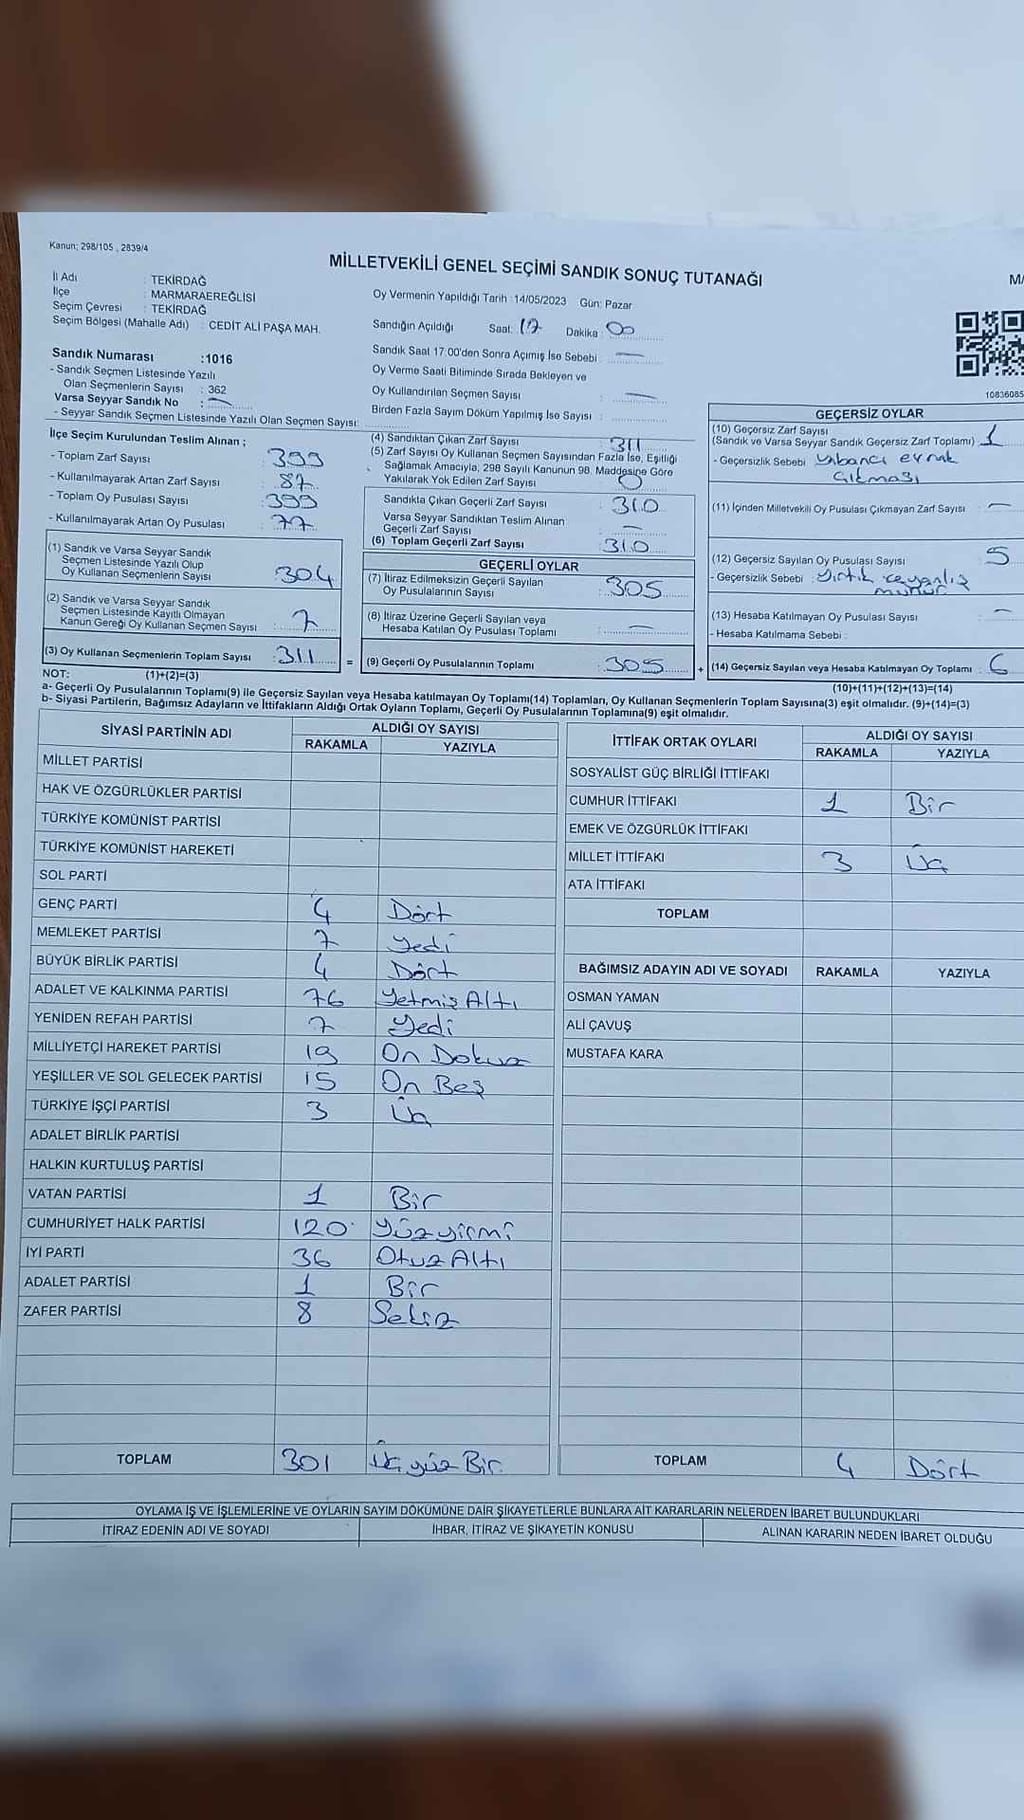 Kanun: 298/105 , 2839/4
MİLLETVEKİLİ GENEL SEÇİMİ SANDIK SONUÇ TUTANAĞI
M/
İl Adı : TEKİRDAĞ
İlçe : MARMARAEREĞLİSİ
Seçim Çevresi : TEKİRDAĞ
Seçim Bölgesi (Mahalle Adı) : CEDİT ALİ PAŞA MAH.
Oy Vermenin Yapıldığı Tarih :14/05/2023 Gün: Pazar
Sandığın Açıldığı Saat: 17 Dakika: 00
Sandık Saat 17:00'den Sonra Açılmış İse Sebebi : —
Oy Verme Saati Bitiminde Sırada Bekleyen ve
Oy Kullandırılan Seçmen Sayısı : —
Birden Fazla Sayım Döküm Yapılmış İse Sayısı :
Sandık Numarası :1016
- Sandık Seçmen Listesinde Yazılı
Olan Seçmenlerin Sayısı : 362
Varsa Seyyar Sandık No : —
- Seyyar Sandık Seçmen Listesinde Yazılı Olan Seçmen Sayısı:
10836085
İlçe Seçim Kurulundan Teslim Alınan ;
- Toplam Zarf Sayısı : 399
- Kullanılmayarak Artan Zarf Sayısı : 87
- Toplam Oy Pusulası Sayısı : 399
- Kullanılmayarak Artan Oy Pusulası : 77
(1) Sandık ve Varsa Seyyar Sandık
Seçmen Listesinde Yazılı Olup
Oy Kullanan Seçmenlerin Sayısı : 304
(2) Sandık ve Varsa Seyyar Sandık
Seçmen Listesinde Kayıtlı Olmayan
Kanun Gereği Oy Kullanan Seçmen Sayısı : 7
(3) Oy Kullanan Seçmenlerin Toplam Sayısı : 311 =
(4) Sandıktan Çıkan Zarf Sayısı : 311
(5) Zarf Sayısı Oy Kullanan Seçmen Sayısından Fazla İse, Eşitliği
Sağlamak Amacıyla, 298 Sayılı Kanunun 98. Maddesine Göre
Yakılarak Yok Edilen Zarf Sayısı : 0
Sandıkta Çıkan Geçerli Zarf Sayısı : 310
Varsa Seyyar Sandıktan Teslim Alınan
Geçerli Zarf Sayısı : —
(6) Toplam Geçerli Zarf Sayısı : 310
GEÇERLİ OYLAR
(7) İtiraz Edilmeksizin Geçerli Sayılan
Oy Pusulalarının Sayısı : 305
(8) İtiraz Üzerine Geçerli Sayılan veya
Hesaba Katılan Oy Pusulası Toplamı : —
(9) Geçerli Oy Pusulalarının Toplamı : 305 +
GEÇERSİZ OYLAR
(10) Geçersiz Zarf Sayısı
(Sandık ve Varsa Seyyar Sandık Geçersiz Zarf Toplamı) : 1
- Geçersizlik Sebebi : Yabancı evrak
çıkması
(11) İçinden Milletvekili Oy Pusulası Çıkmayan Zarf Sayısı : —
(12) Geçersiz Sayılan Oy Pusulası Sayısı : 5
- Geçersizlik Sebebi : Yırtık
mühür
(13) Hesaba Katılmayan Oy Pusulası Sayısı : —
- Hesaba Katılmama Sebebi :
(14) Geçersiz Sayılan veya Hesaba Katılmayan Oy Toplamı : 6
NOT: (1)+(2)=(3)
(10)+(11)+(12)+(13)=(14)
a- Geçerli Oy Pusulalarının Toplamı(9) ile Geçersiz Sayılan veya Hesaba katılmayan Oy Toplamı(14) Toplamları, Oy Kullanan Seçmenlerin Toplam Sayısına(3) eşit olmalıdır. (9)+(14)=(3)
b- Siyasi Partilerin, Bağımsız Adayların ve İttifakların Aldığı Ortak Oyların Toplamı, Geçerli Oy Pusulalarının Toplamına(9) eşit olmalıdır.
SİYASİ PARTİNİN ADI ALDIĞI OY SAYISI
RAKAMLA YAZIYLA
MİLLET PARTİSİ
HAK VE ÖZGÜRLÜKLER PARTİSİ
TÜRKİYE KOMÜNİST PARTİSİ
TÜRKİYE KOMÜNİST HAREKETİ
SOL PARTİ
GENÇ PARTİ 4 Dört
MEMLEKET PARTİSİ 7 Yedi
BÜYÜK BİRLİK PARTİSİ 4 Dört
ADALET VE KALKINMA PARTİSİ 76 Yetmiş Altı
YENİDEN REFAH PARTİSİ 7 Yedi
MİLLİYETÇİ HAREKET PARTİSİ 19 On Dokuz
YEŞİLLER VE SOL GELECEK PARTİSİ 15 On Beş
TÜRKİYE İŞÇİ PARTİSİ 3 Üç
ADALET BİRLİK PARTİSİ
HALKIN KURTULUŞ PARTİSİ
VATAN PARTİSİ 1 Bir
CUMHURİYET HALK PARTİSİ 120 Yüz yirmi
İYİ PARTİ 36 Otuz Altı
ADALET PARTİSİ 1 Bir
ZAFER PARTİSİ 8 Sekiz
TOPLAM 301 Üç yüz Bir
İTTİFAK ORTAK OYLARI ALDIĞI OY SAYISI
RAKAMLA YAZIYLA
SOSYALİST GÜÇ BİRLİĞİ İTTİFAKI
CUMHUR İTTİFAKI 1 Bir
EMEK VE ÖZGÜRLÜK İTTİFAKI
MİLLET İTTİFAKI 3 Üç
ATA İTTİFAKI
TOPLAM
BAĞIMSIZ ADAYIN ADI VE SOYADI RAKAMLA YAZIYLA
OSMAN YAMAN
ALİ ÇAVUŞ
MUSTAFA KARA
TOPLAM 4 Dört
OYLAMA İŞ VE İŞLEMLERİNE VE OYLARIN SAYIM DÖKÜMÜNE DAİR ŞİKAYETLERLE BUNLARA AİT KARARLARIN NELERDEN İBARET BULUNDUKLARI
İTİRAZ EDENİN ADI VE SOYADI İHBAR, İTİRAZ VE ŞİKAYETİN KONUSU ALINAN KARARIN NEDEN İBARET OLDUĞU